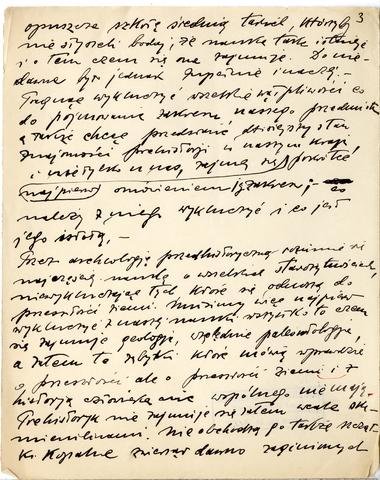 3
opuszcza szkołę średnią takich, którzyby
nie słyszeli bodaj, że nauka taka istnieje
i o tem czem się ona zajmuje. Do nie-
dawna było jednak zupełnie inaczej.-
Pragnąc wykluczyć wszelkie wątpliwości co
do pojmowania zakresu naszego przedmiotu
a także chcąc przedstawić dzisiejszy stan
znajomości prehistorji w naszym kraju,
i u nas, zajmę się pokrótce
najpierw omówieniem jej zakresu; - co
należy z niego wykluczyć i co jest
jego istotą.-
Przez archeologję przedhistoryczną rozumie się
najczęściej naukę o wszelkich starożytnościach,
niewykluczając tych które się odnoszą do
przeszłości ziemi. Musimy więc najpierw
wykluczyć z naszej nauki wszystko to czem
się zajmuje geologja, względnie paleontologja,
a zatem te zabytki które mówią wprawdzie
o przeszłości ale o przeszłości ziemi i z
historją człowieka nic wspólnego nie mają.
Prehistoryk nie zajmuje się zatem wcale ska-
mielinami. Nie obchodzą go także szcząt-
ki kopalne zwierząt dawno zaginionych